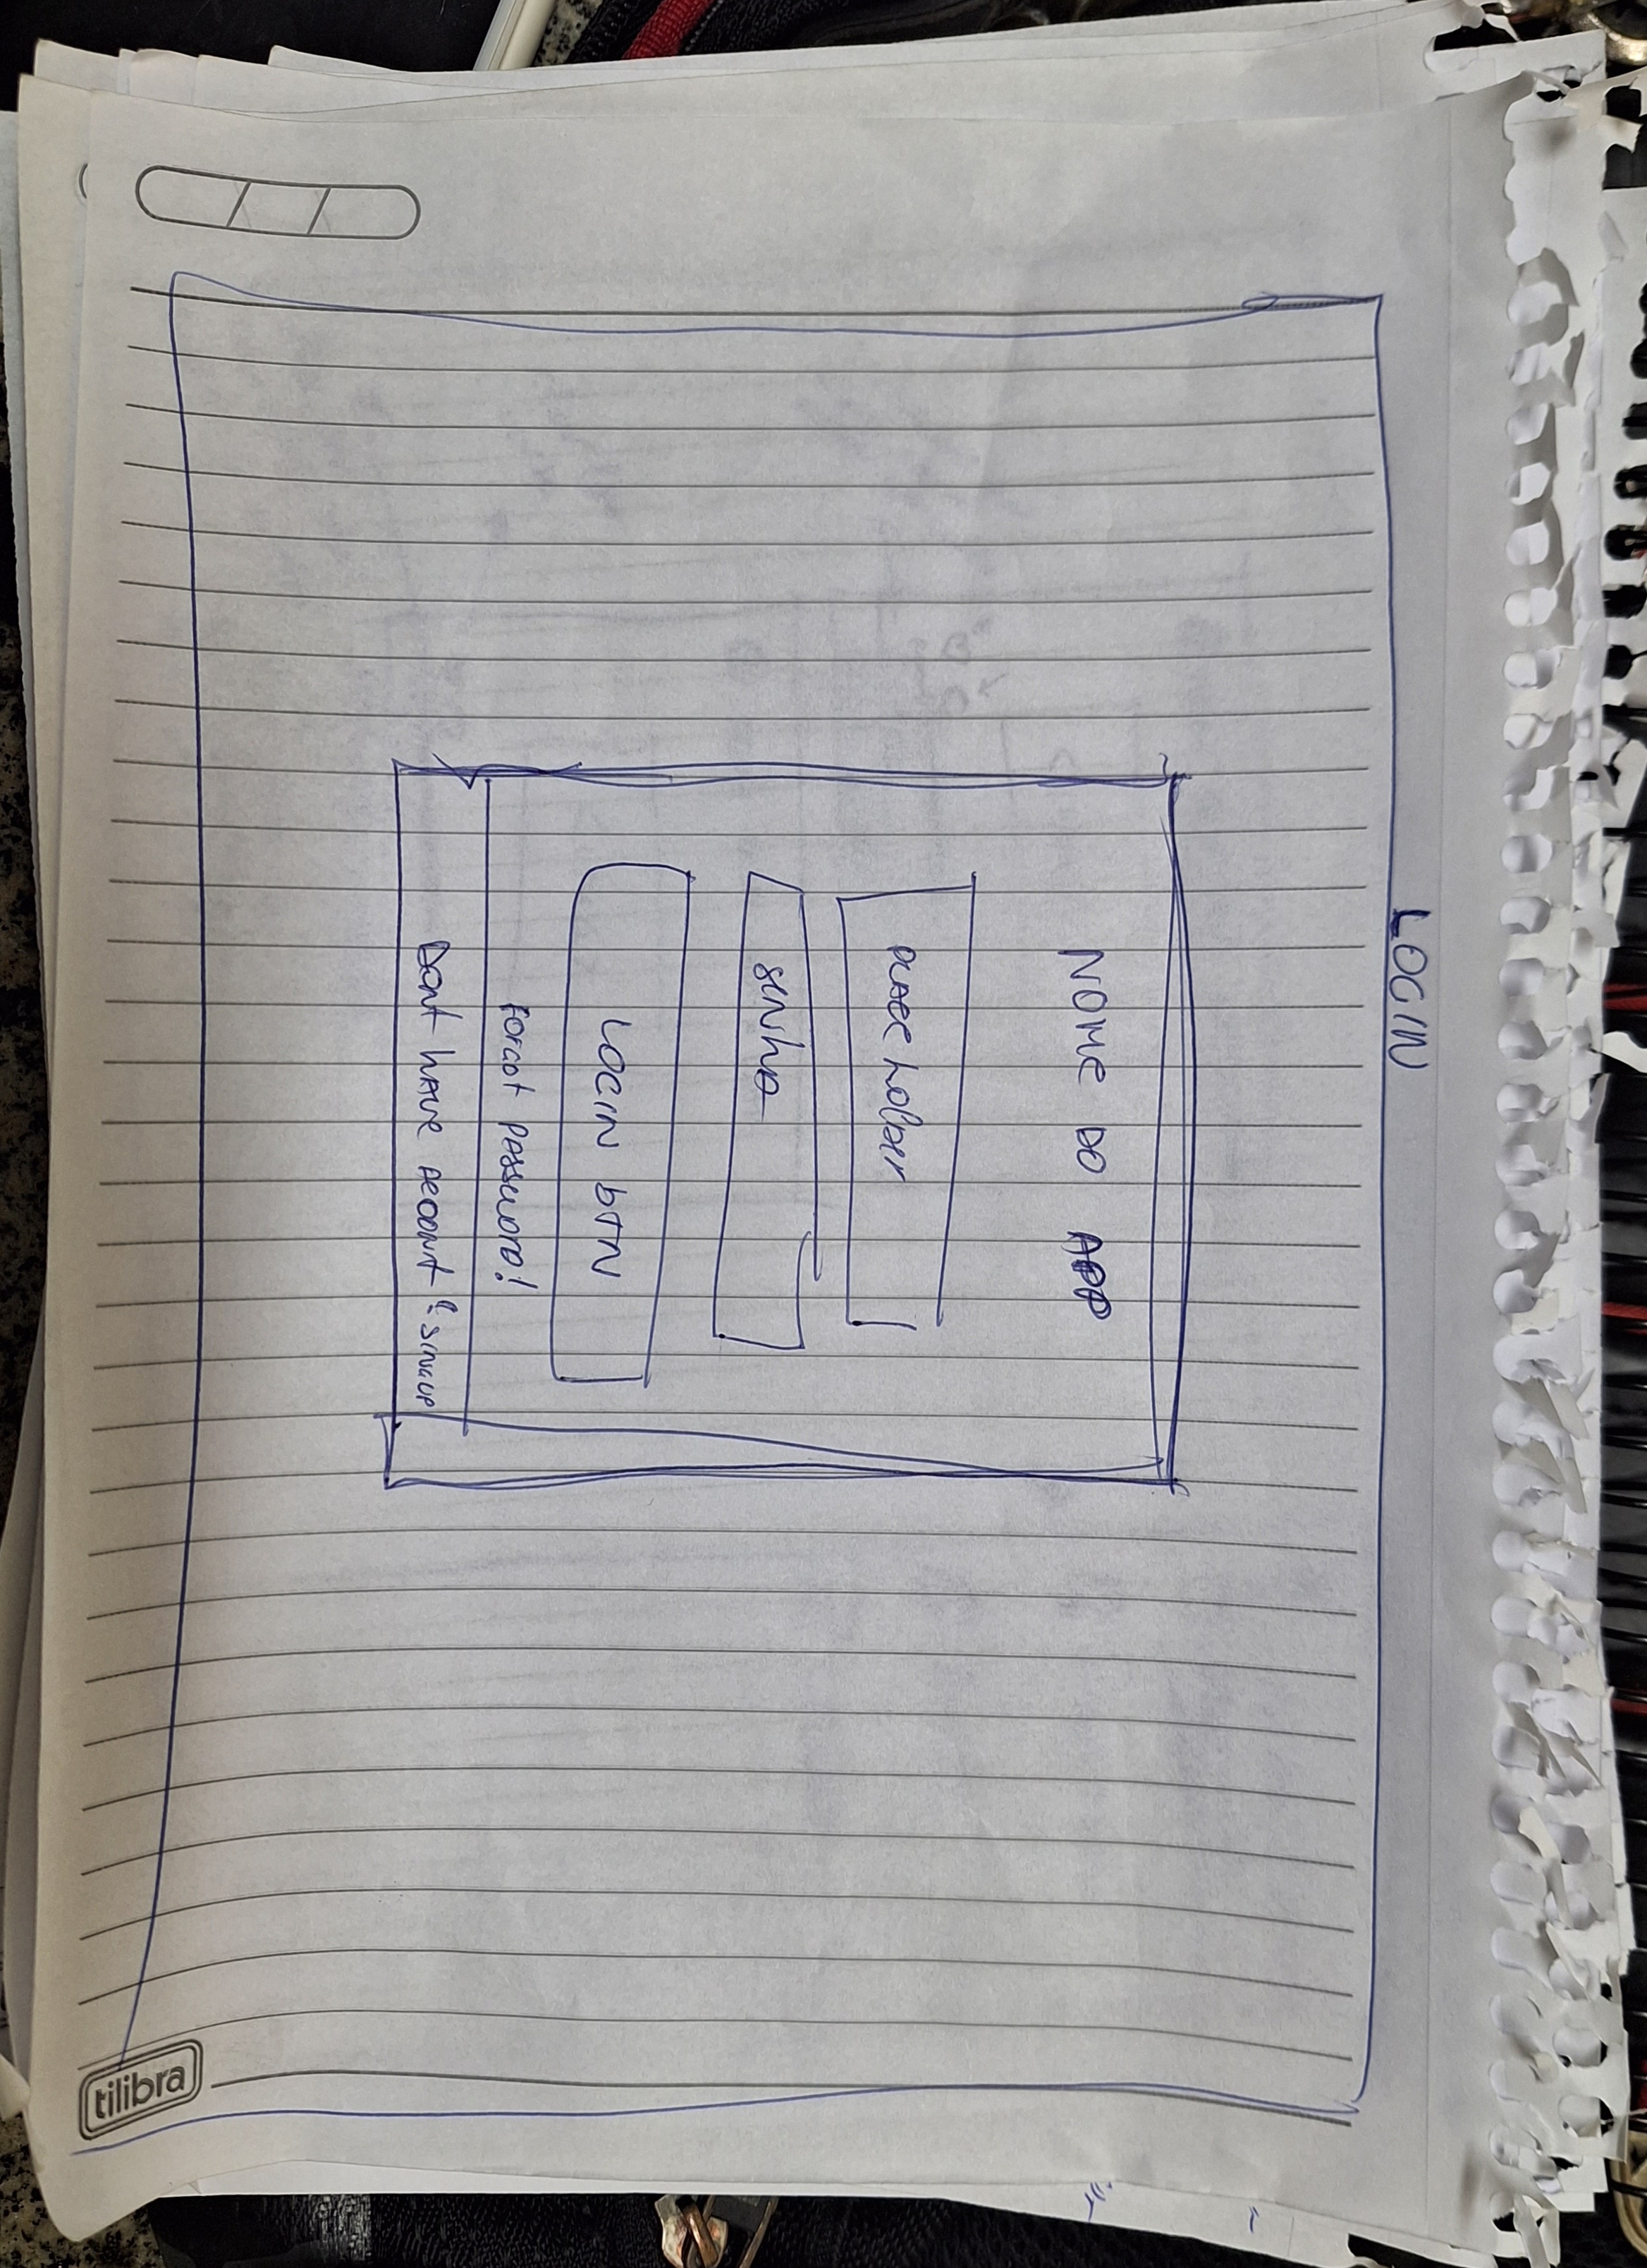 LOGIN
NOME DO APP
PLACE holder
senha
LOGIN bTN
forgot password!
Dont have accont? sinup
tilibra